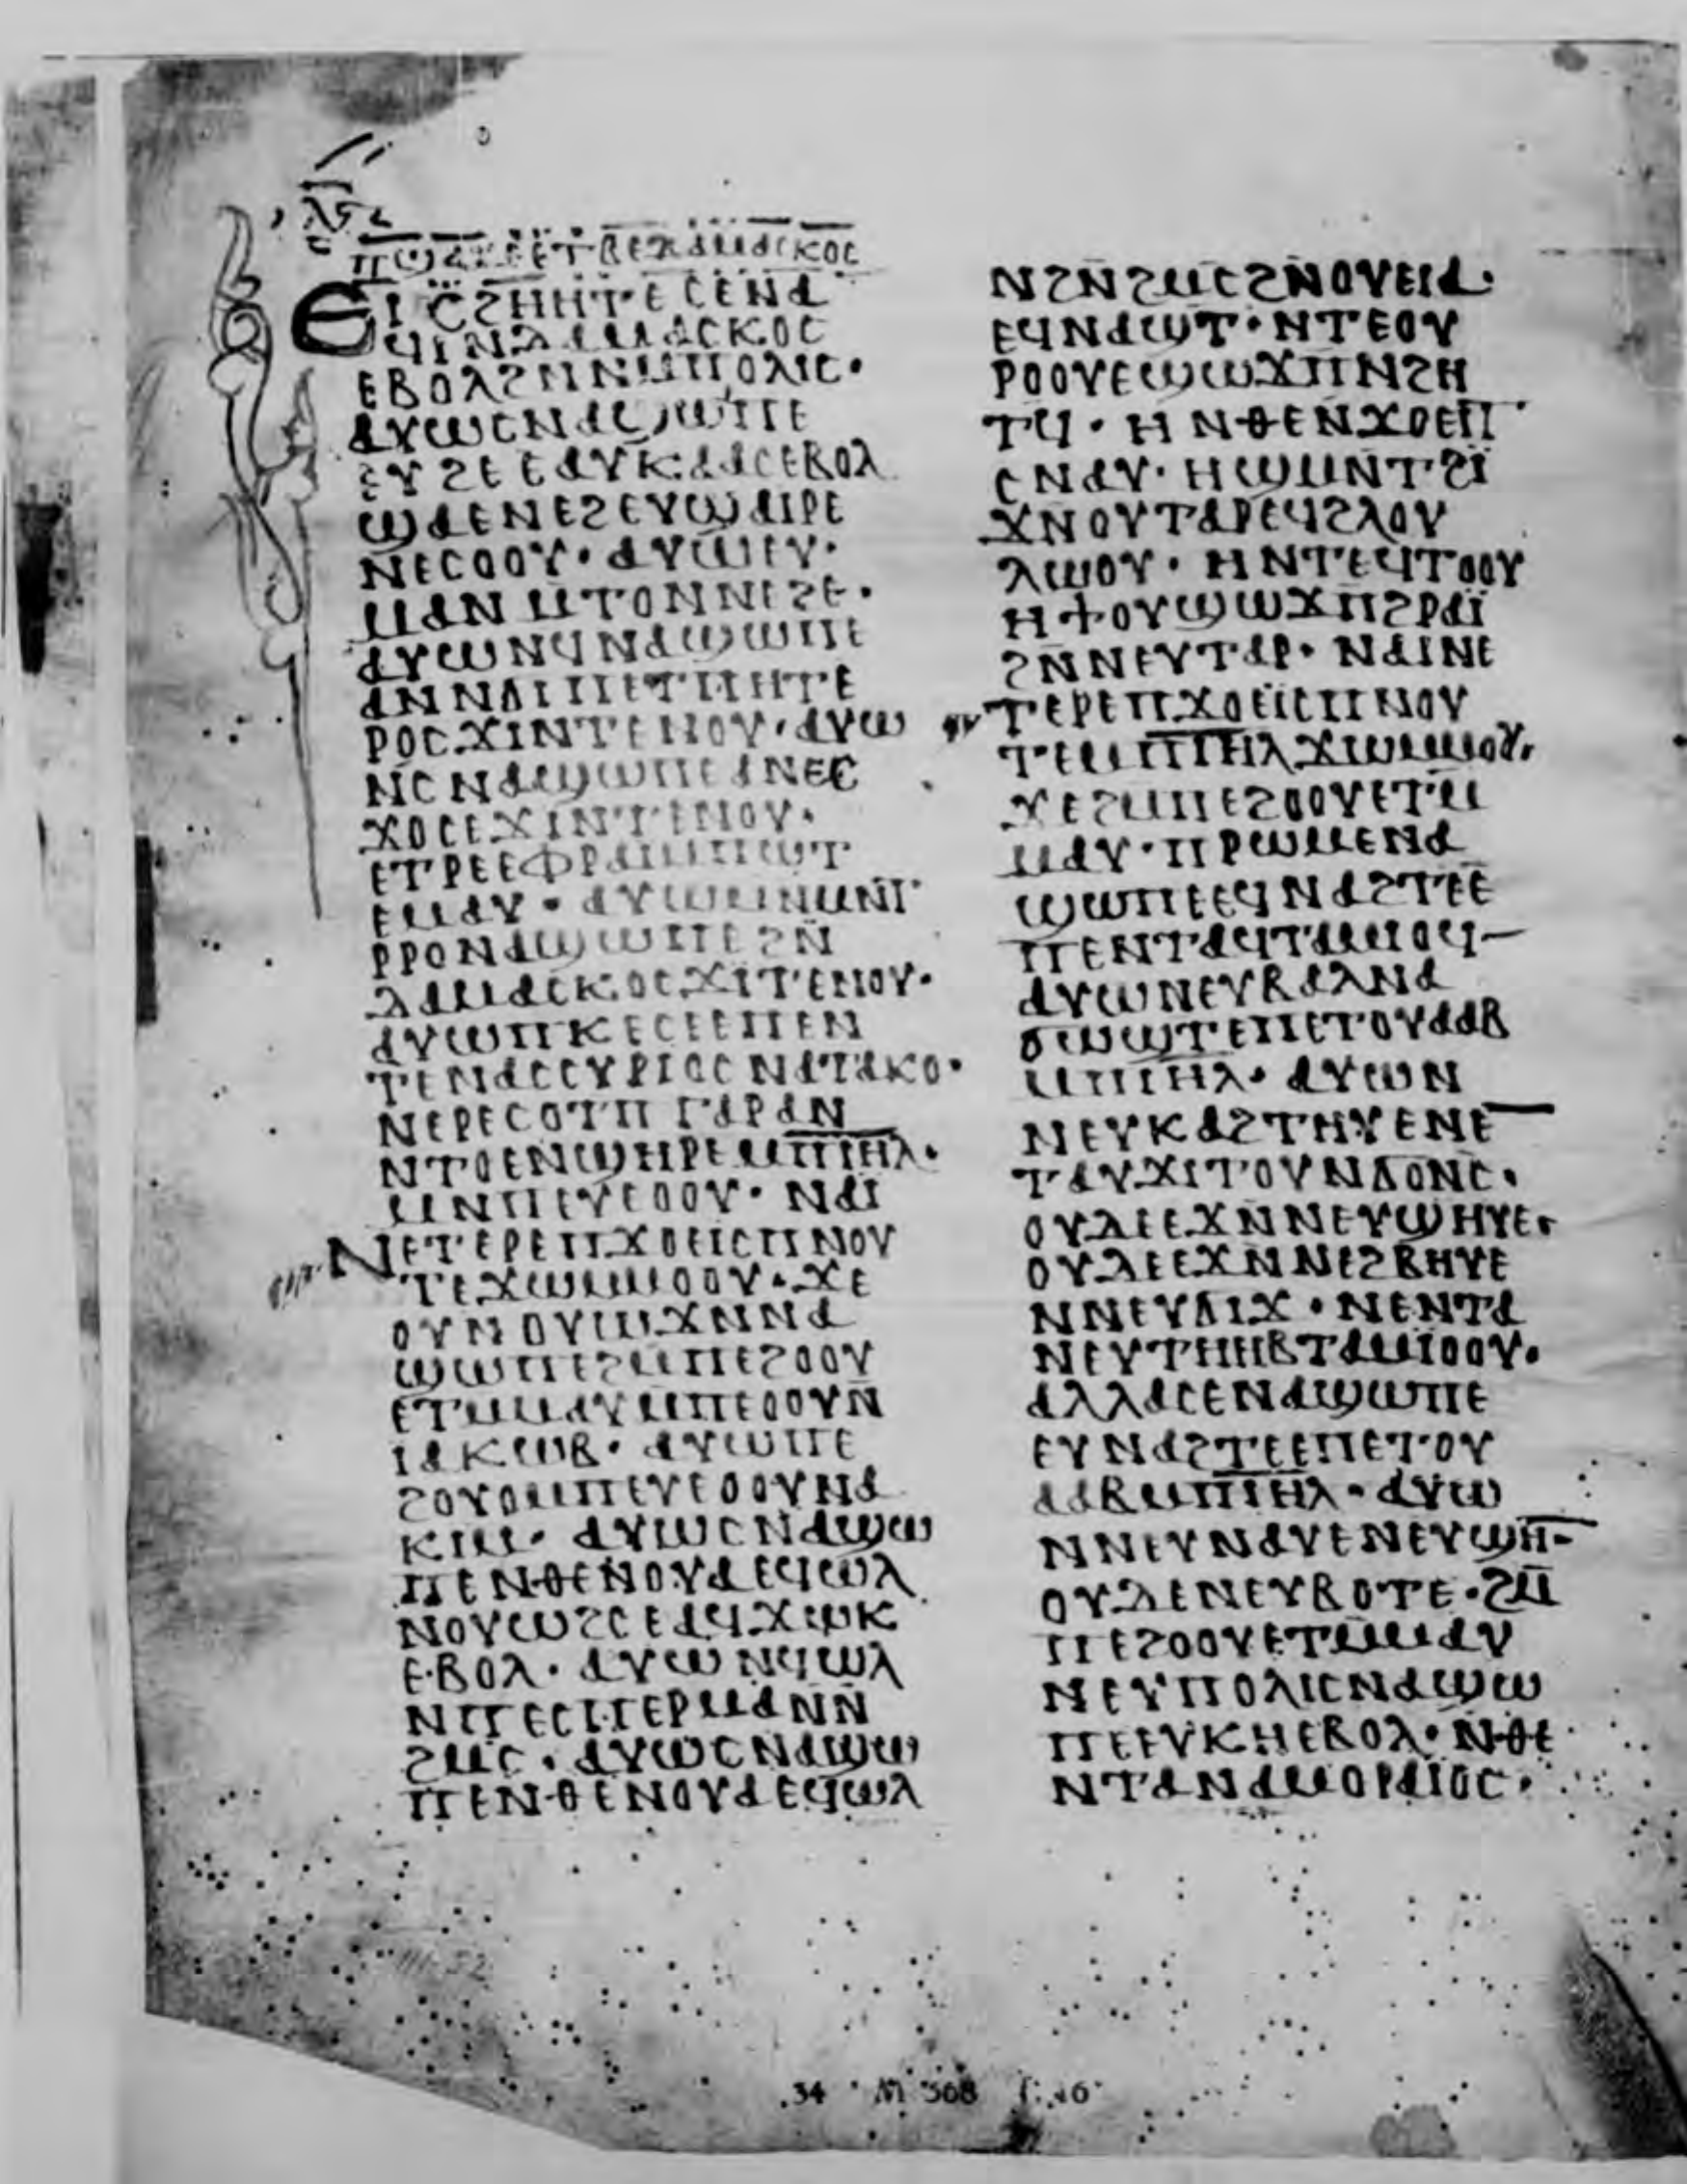 ⲗⲋ
ⲡϣⲁϫⲉ ⲉⲧⲃⲉⲇⲁⲙⲁⲥⲕⲟⲥ
ⲉⲓⲥϩⲏⲏⲧⲉ ⲥⲉⲛⲁ
ϥⲓⲛⲇⲁⲙⲁⲥⲕⲟⲥ
ⲉⲃⲟⲗϩⲛⲛⲙⲡⲟⲗⲓⲥ·
ⲁⲩⲱⲥⲛⲁϣⲱⲡⲉ
ⲉⲩϩⲉ ⲉⲁⲩⲕⲁⲁⲥⲉⲃⲟⲗ
ϣⲁⲉⲛⲉϩⲉⲩⲱⲁⲓⲣⲉ
ⲛⲉⲥⲟⲟⲩ· ⲁⲩⲱⲉⲩ·
ⲙⲁⲛⲙⲧⲟⲛⲛⲉϩⲉ·
ⲁⲩⲱⲛϥⲛⲁϣⲱⲡⲉ
ⲁⲛⲛϭⲓⲡⲉⲧⲡⲏⲧⲉ
ⲣⲟⲥϫⲓⲛⲧⲉⲛⲟⲩ· ⲁⲩⲱ
ⲛⲥⲛⲁϣⲱⲡⲉⲁⲛⲉⲥ
ϫⲟⲥⲉϫⲓⲛⲧⲉⲛⲟⲩ·
ⲉⲧⲣⲉⲉⲫⲣⲁⲓⲙⲡⲱⲧ
ⲉⲙⲁⲩ· ⲁⲩⲱⲛⲛⲙⲛⲧ
ⲣⲣⲟⲛⲁϣⲱⲡⲉϩⲛ
ⲇⲁⲙⲁⲥⲕⲟⲥϫⲓⲧⲉⲛⲟⲩ·
ⲁⲩⲱⲡⲕⲉⲥⲉⲉⲡⲉⲛ
ⲧⲉⲛⲁⲥⲥⲩⲣⲓⲟⲥ ⲛⲁⲧⲁⲕⲟ·
ⲛⲉⲣⲉⲥⲟⲧⲡ ⲅⲁⲣⲁⲛ
ⲛⲧⲟⲉⲛϣⲏⲣⲉⲙⲡⲓⲏⲗ·
ⲙⲛⲡⲉⲩⲉⲟⲟⲩ· ⲛⲁⲓ
ⲛⲉⲧⲉⲣⲉⲡϫⲟⲉⲓⲥⲡⲛⲟⲩ
ⲧⲉϫⲱⲙⲙⲟⲟⲩ· ϫⲉ
ⲟⲩⲛⲟⲩⲱϫⲛⲛⲁ
ϣⲱⲡⲉϩⲙⲡⲉϩⲟⲟⲩ
ⲉⲧⲙⲙⲁⲩⲙⲡⲉⲟⲟⲩⲛ̄
ⲓⲁⲕⲱⲃ· ⲁⲩⲱⲡⲉ
ϩⲟⲩⲟⲙⲡⲉⲩⲉⲟⲟⲩⲛⲁ
ⲕⲓⲙ· ⲁⲩⲱⲥⲛⲁϣⲱ
ⲡⲉⲛⲑⲉⲛⲟⲩⲁⲉϥⲱⲗ
ⲛⲟⲩⲱϩⲥⲉⲁϥϫⲱⲕ
ⲉⲃⲟⲗ· ⲁⲩⲱⲛϥⲱⲗ
ⲛⲡⲉⲥⲡⲉⲣⲙⲁⲛⲛ̄
ϩⲙⲥ· ⲁⲩⲱⲥⲛⲁϣⲱ
ⲡⲉⲛⲑⲉⲛⲟⲩⲁⲉϥⲱⲗ
ⲛϩⲛ̄ϩⲙⲥϩⲛ̄ⲟⲩⲉⲓⲁ·
ⲉϥⲛⲁϣⲧ· ⲛⲧⲉⲟⲩ
ⲣⲟⲟⲩⲉϣⲱϫⲡⲛϩⲏ
ⲧϥ· ⲏ ⲛⲑⲉⲛϫⲟⲉⲓⲧ
ⲥⲛⲁⲩ· ⲏϣⲙⲛⲧϩⲓ
ϫⲛⲟⲩⲧⲁⲣⲉϥϩⲗⲟⲩ
ⲗⲱⲟⲩ· ⲏⲛⲧⲉϥⲧⲟⲟⲩ
ⲏϯⲟⲩϣⲱϫⲡϩⲣⲁⲓ̈
ϩⲛ̄ⲛⲉⲩⲧⲁⲣ· ⲛⲁⲓⲛⲉ
ⲧⲉⲣⲉⲡϫⲟⲉⲓⲥⲡⲛⲟⲩ
ⲧⲉⲙⲡⲓⲏⲗϫⲱⲙⲙⲟⲩ·
ϫⲉϩⲙⲡⲉϩⲟⲟⲩⲉⲧⲙ
ⲙⲁⲩ· ⲡⲣⲱⲙⲉⲛⲁ
ϣⲱⲡⲉⲉϥⲛⲁϩⲧⲉⲉ
ⲡⲉⲛⲧⲁϥⲧⲁⲙⲓⲟϥ—
ⲁⲩⲱⲛⲉⲩⲃⲁⲗⲛⲁ
ϭⲱϣⲧⲉⲡⲉⲧⲟⲩⲁⲁⲃ
ⲙⲡⲓⲏⲗ· ⲁⲩⲱⲛ
ⲛⲉⲩⲕⲁϩⲧⲏⲩⲉⲛⲉ
ⲧⲁⲩϫⲓⲧⲟⲩⲛϭⲟⲛⲥ·
ⲟⲩⲇⲉⲉϫⲛⲛⲉⲩϣⲏⲩⲉ·
ⲟⲩⲇⲉⲉϫⲛⲛⲉϩⲃⲏⲩⲉ
ⲛⲛⲉⲩϭⲓϫ· ⲛⲉⲛⲧⲁ
ⲛⲉⲩⲧⲏⲏⲃⲧⲁⲙⲓⲟⲟⲩ·
ⲁⲗⲗⲁⲥⲉⲛⲁϣⲱⲡⲉ
ⲉⲩⲛⲁϩⲧⲉⲉⲡⲉⲧⲟⲩ
ⲁⲁⲃⲙⲡⲓⲏⲗ· ⲁⲩⲱ
ⲛⲛⲉⲩⲛⲁⲩⲉⲛⲉⲩϣⲏ-
ⲟⲩⲇⲉⲛⲉⲩⲃⲟⲧⲉ· ϩⲙ̄
ⲡⲉϩⲟⲟⲩⲉⲧⲙⲙⲁⲩ
ⲛⲉⲩⲡⲟⲗⲓⲥⲛⲁϣⲱ
ⲡⲉⲉⲩⲕⲏⲉⲃⲟⲗ· ⲛⲑⲉ
ⲛⲧⲁⲛⲁⲙⲟⲣⲁⲓⲟⲥ·
34 M 568 f. 16